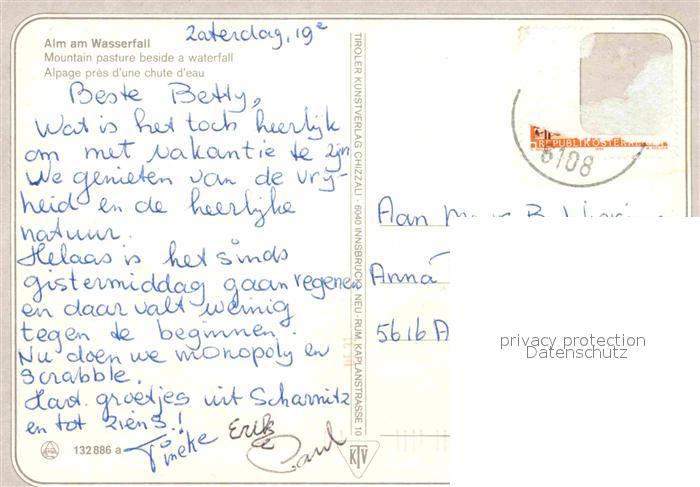 Zaterdag, 19e
Alm am Wasserfall
Mountain pasture beside a waterfall
Alpage près d'une chute d'eau
Beste Betty,
Wat is het toch heerlijk
om met vakantie te zijn
We genieten van de vrij-
heid en de heerlijke
natuur.
Helaas is het sinds
gistermiddag gaan regenen
en daar valt weinig
tegen te beginnen.
Nu doen we monopoly en
scrabble.
Hart. groetjes uit Scharnitz
en tot ziens!
Tineke Erik Paul
132886 a
TIROLER KUNSTVERLAG CHIZZALI · 6040 INNSBRUCK · NEU-RUM, KAPLANSTRASSE 10
KTV
REPUBLIK ÖSTERREICH
6108
Aan B.
Anna
5616 A
privacy protection
Datenschutz